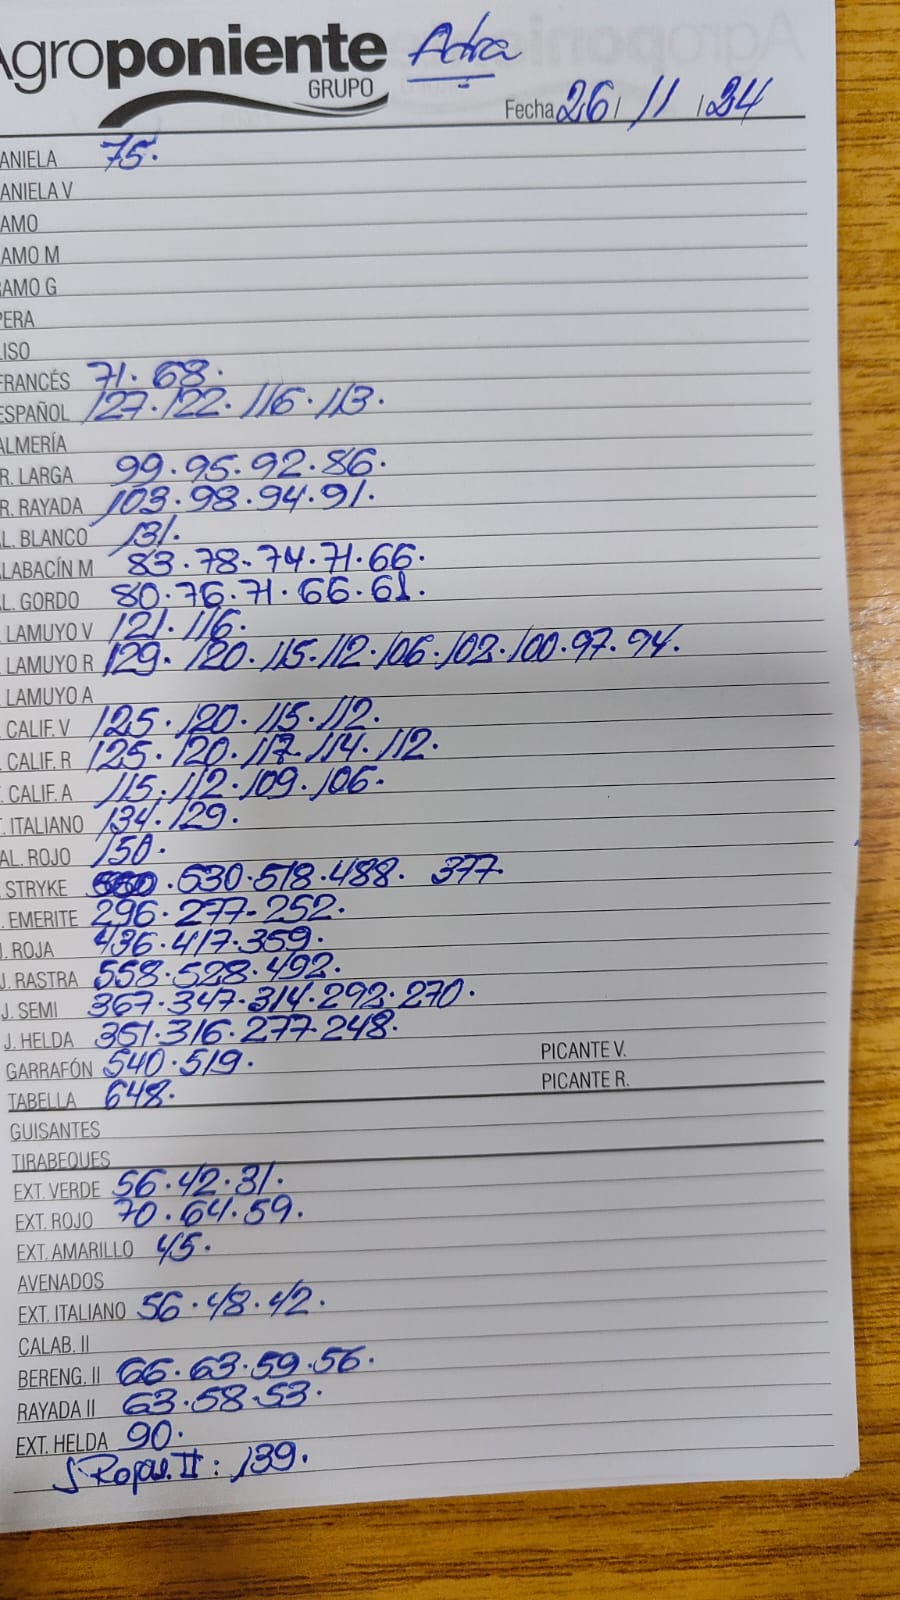 Agroponiente Adra
GRUPO
Fecha 26 / 11 / 24
ANIELA 75.
ANIELA V
AMO
AMO M
RAMO G
PERA
LISO
FRANCÉS 71. 68.
ESPAÑOL 127. 122. 116. 113.
ALMERÍA
R. LARGA 99. 95. 92. 86.
R. RAYADA 103. 98. 94. 91.
L. BLANCO 131.
LABACÍN M 83. 78. 74. 71. 66.
AL. GORDO 80. 76. 71. 66. 61.
. LAMUYO V 121. 116.
. LAMUYO R 129. 120. 115. 112. 106. 102. 100. 97. 94.
. LAMUYO A
. CALIF. V 125. 120. 115. 112.
. CALIF. R 125. 120. 117. 114. 112.
. CALIF. A 115. 112. 109. 106.
T. ITALIANO 134. 129.
AL. ROJO 150.
. STRYKE . 630. 518. 488. 377.
. EMERITE 296. 277. 252.
J. ROJA 436. 417. 359.
J. RASTRA 558. 528. 492.
J. SEMI 367. 347. 314. 292. 270.
J. HELDA 351. 316. 277. 248.
GARRAFÓN 540. 519. PICANTE V.
TABELLA 648. PICANTE R.
GUISANTES
TIRABEQUES
EXT. VERDE 56. 42. 31.
EXT. ROJO 70. 64. 59.
EXT. AMARILLO 45.
AVENADOS
EXT. ITALIANO 56. 48. 42.
CALAB. II
BERENG. II 66. 63. 59. 56.
RAYADA II 63. 58. 53.
EXT. HELDA 90.
J Rojas. II : 139.